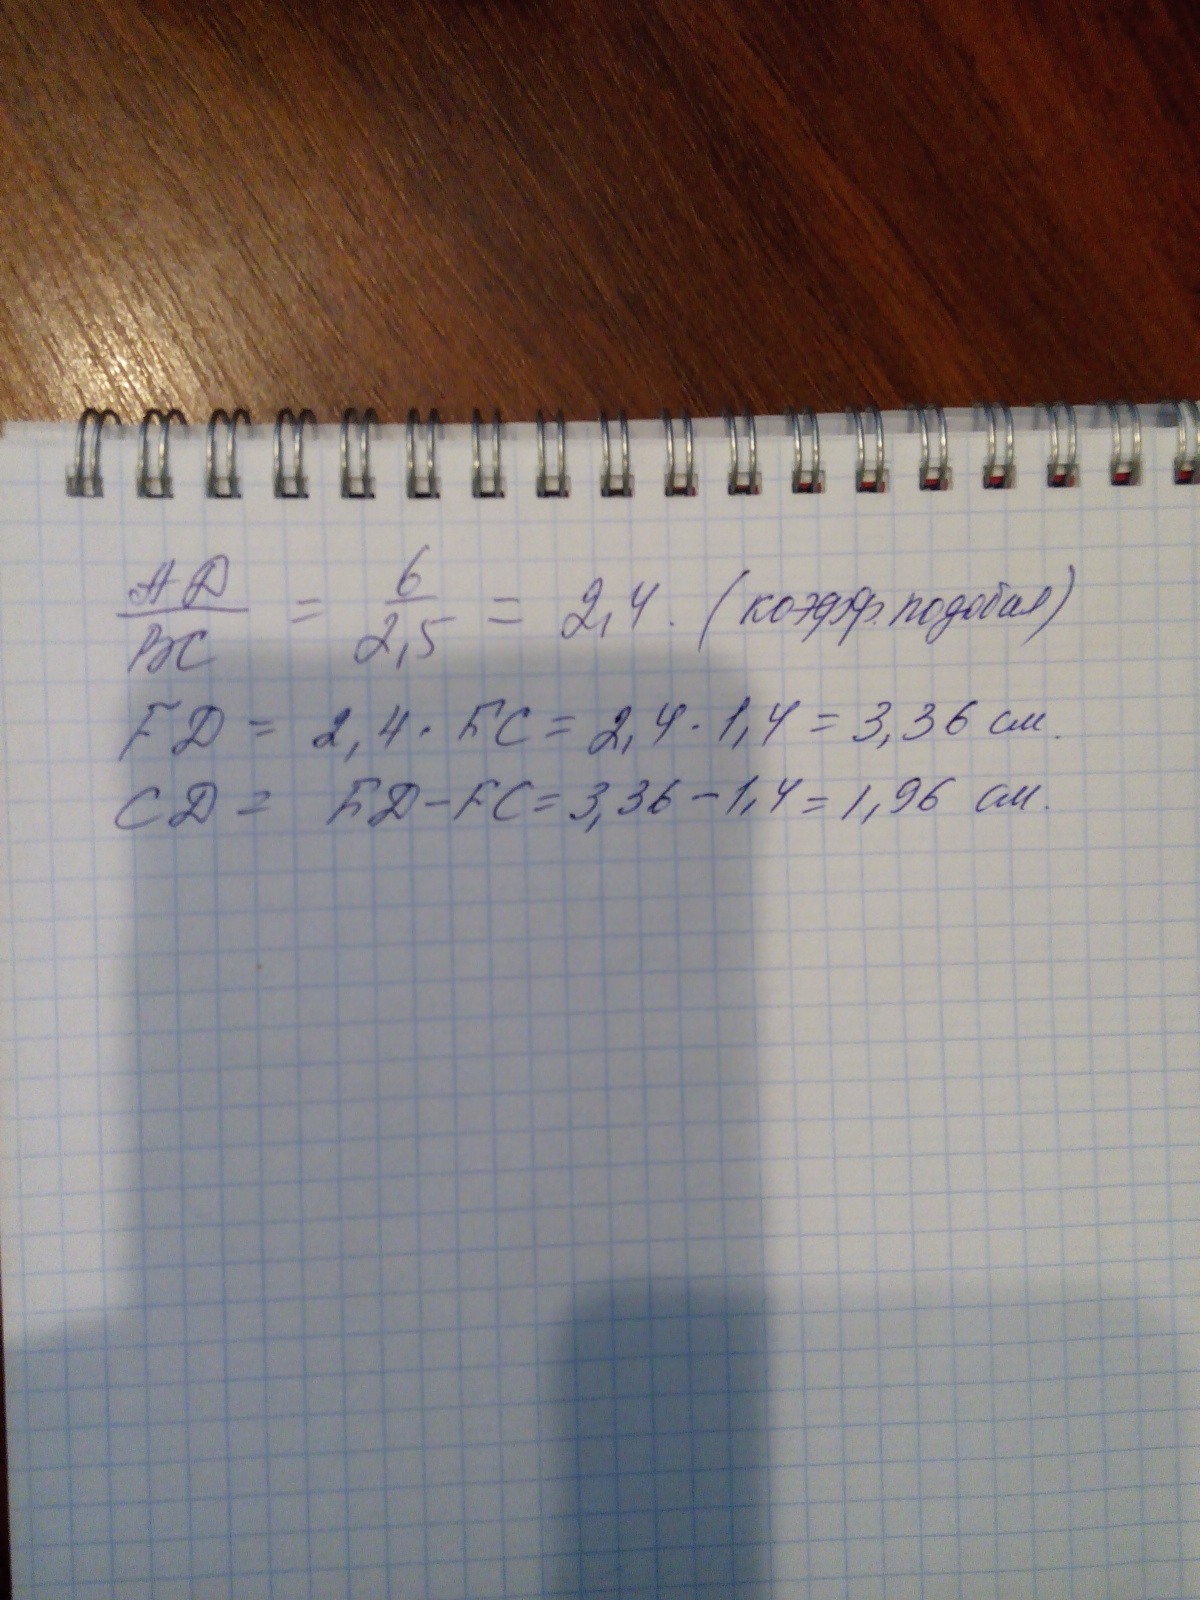 AD/BC = 6/2,5 = 2,4. (коэфф. подобая)
FD = 2,4 · FC = 2,4 · 1,4 = 3,36 см.
CD = FD - FC = 3,36 - 1,4 = 1,96 см.